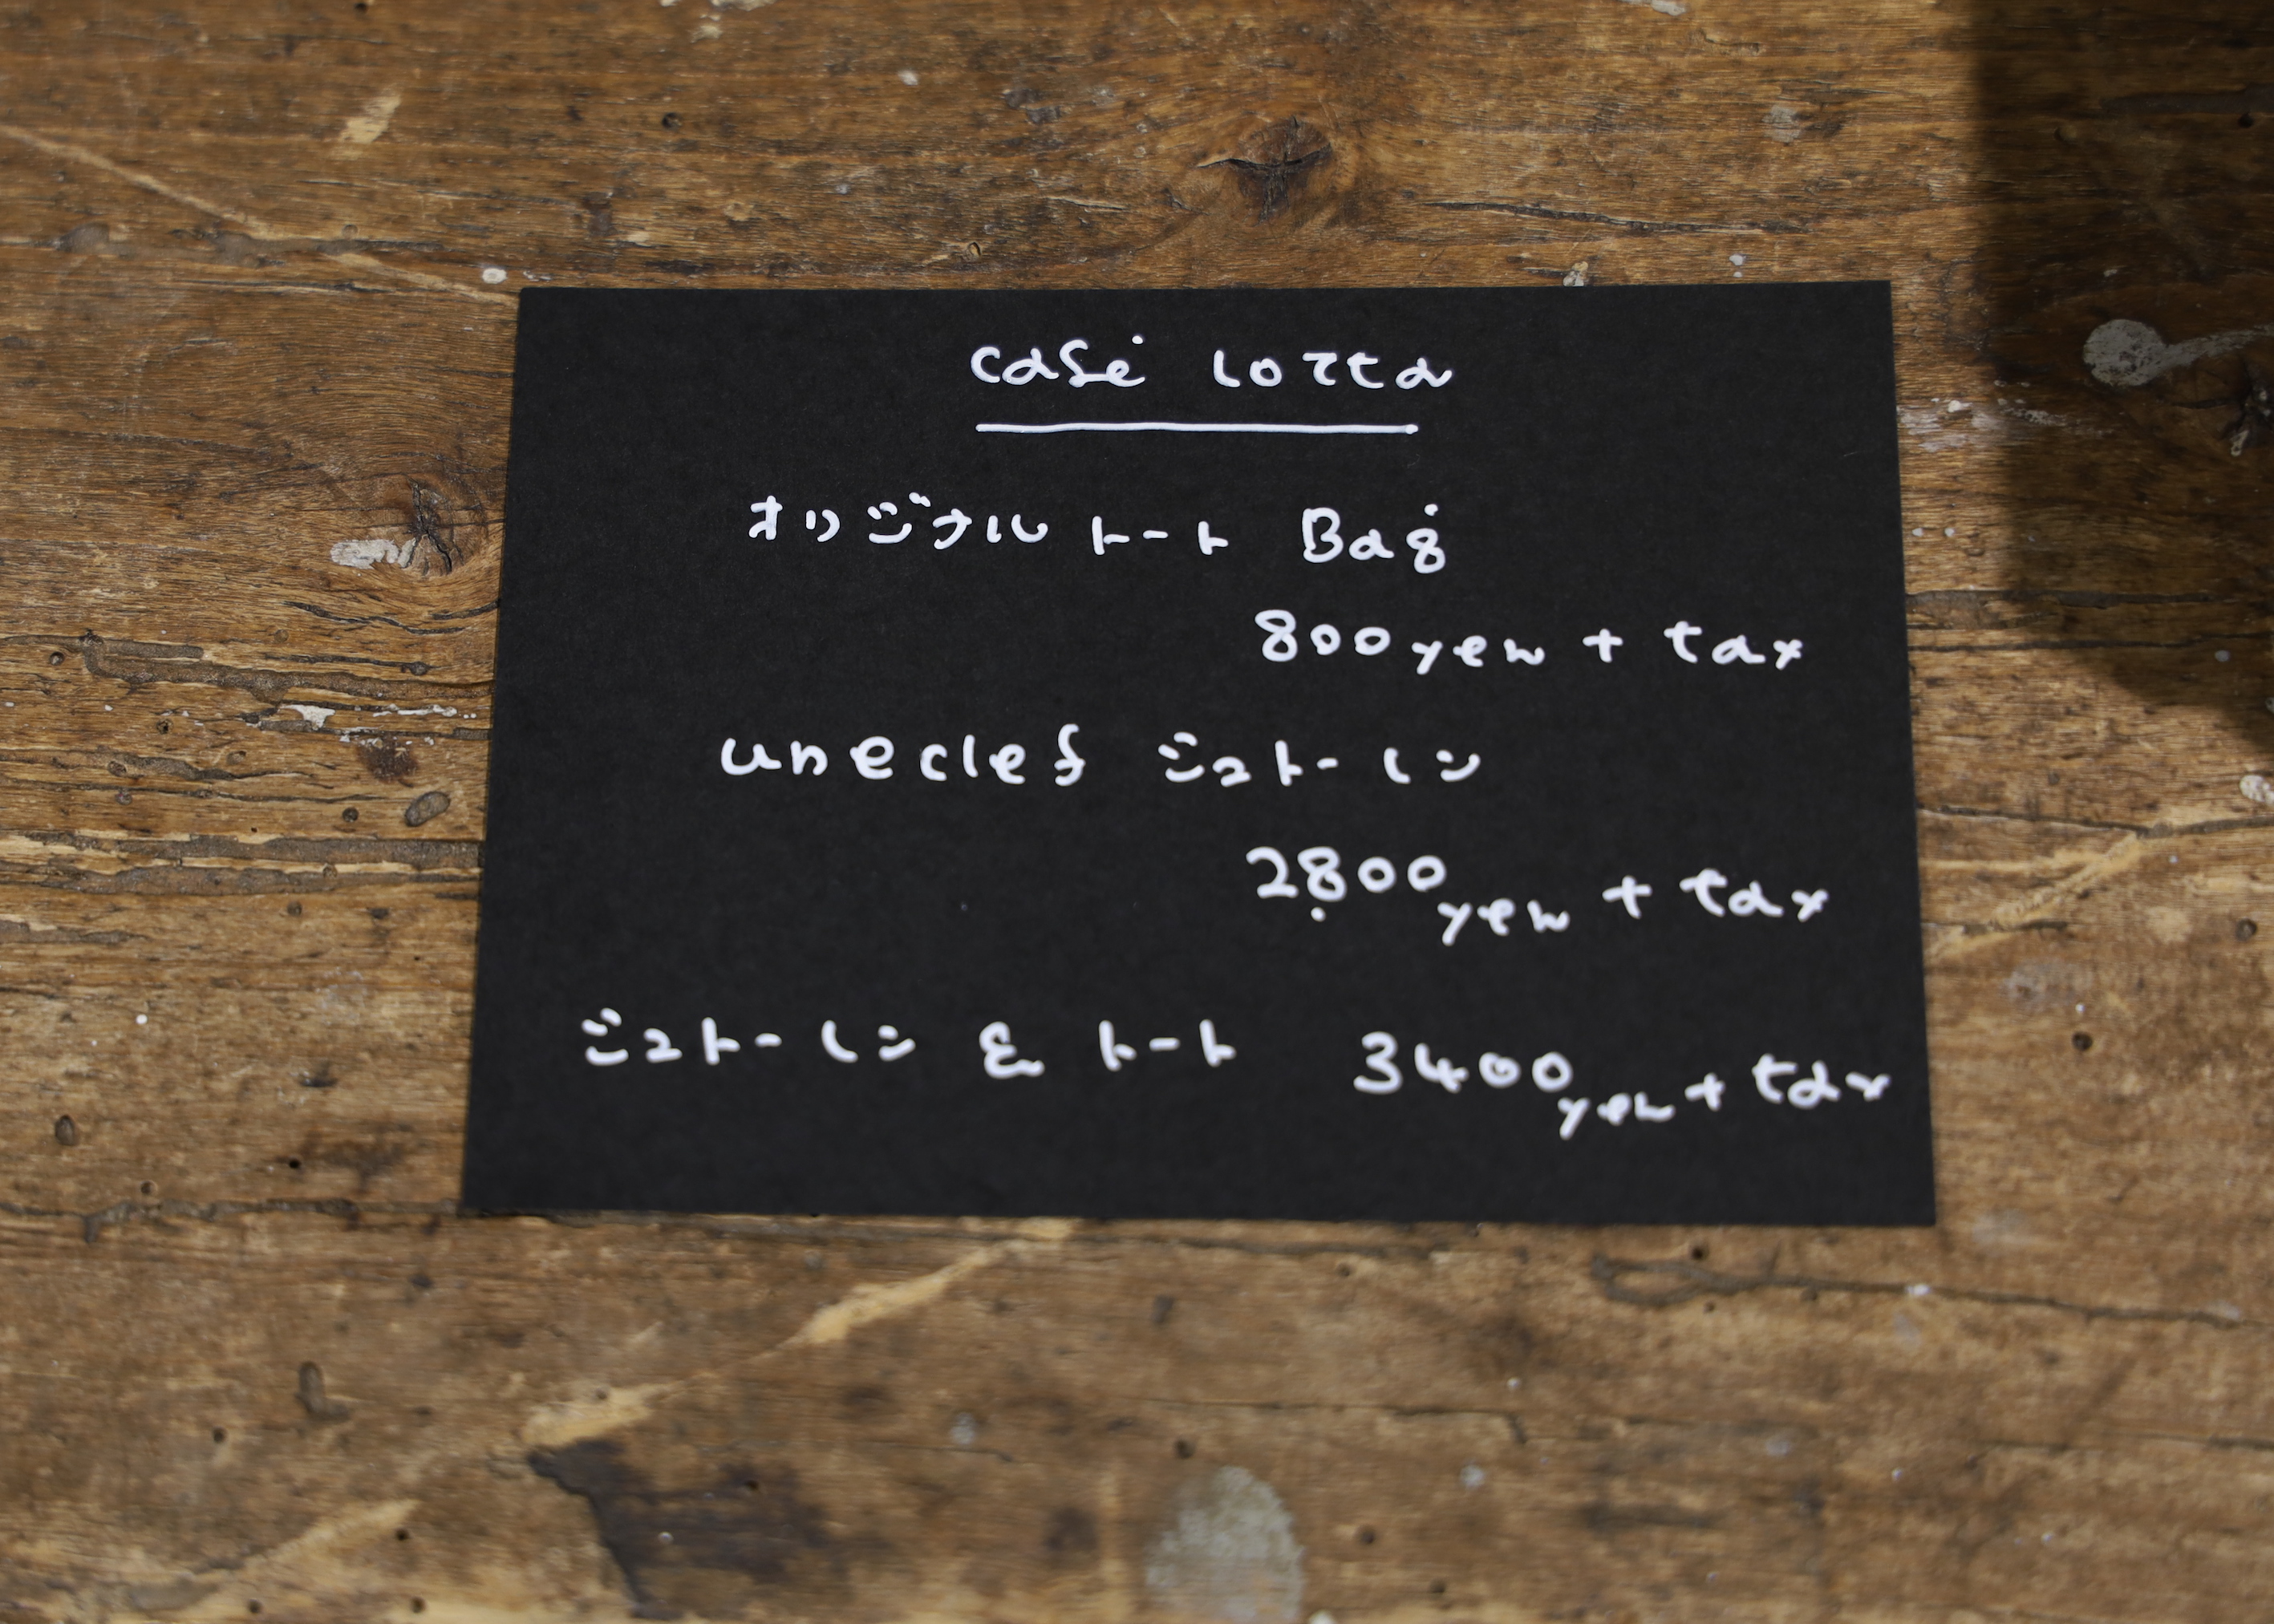 case lotta
オリジナル トート Bag
800yen + tax
uneclef シュトーレン
2800yen + tax
シュトーレン & トート 3400yen + tax